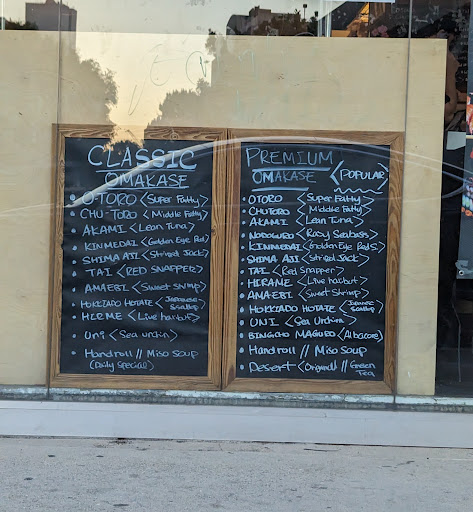 CLASSIC
OMAKASE
• OTORO <Super Fatty>
• CHU-TORO <Middle Fatty>
• AKAMI <Lean Tuna>
• KINMEDAI <Golden Eye Red>
• SHIMA AJI <Striped Jack>
• TAI <RED SNAPPER>
• AMAEBI <Sweet Shrimp>
• HOKKIADO HOTATE <Japanese Scallop>
• HIRME <Live harbut>
• Uni <Sea urchin>
• Handroll // Miso Soup
(Daily Special)
PREMIUM
OMAKASE <POPULAR>
• OTORO <Super Fatty>
• CHUTORO <Middle Fatty>
• AKAMI <Lean Tuna>
• NODOGURO <Rosy Seabass>
• KINMEDAI <Golden Eye Red>
• SHIMA AJI <Striped Jack>
• TAI <Red Snapper>
• HIRAME <Live harbut>
• AMAEBI <Sweet Shrimp>
• HOKKADO HOTATE <Japanese Scallop>
• UNI <Sea Urchin>
• BINGCHO MAGURO <Albacore>
• Handroll // Miso Soup
• Desert <Original // Green Tea>